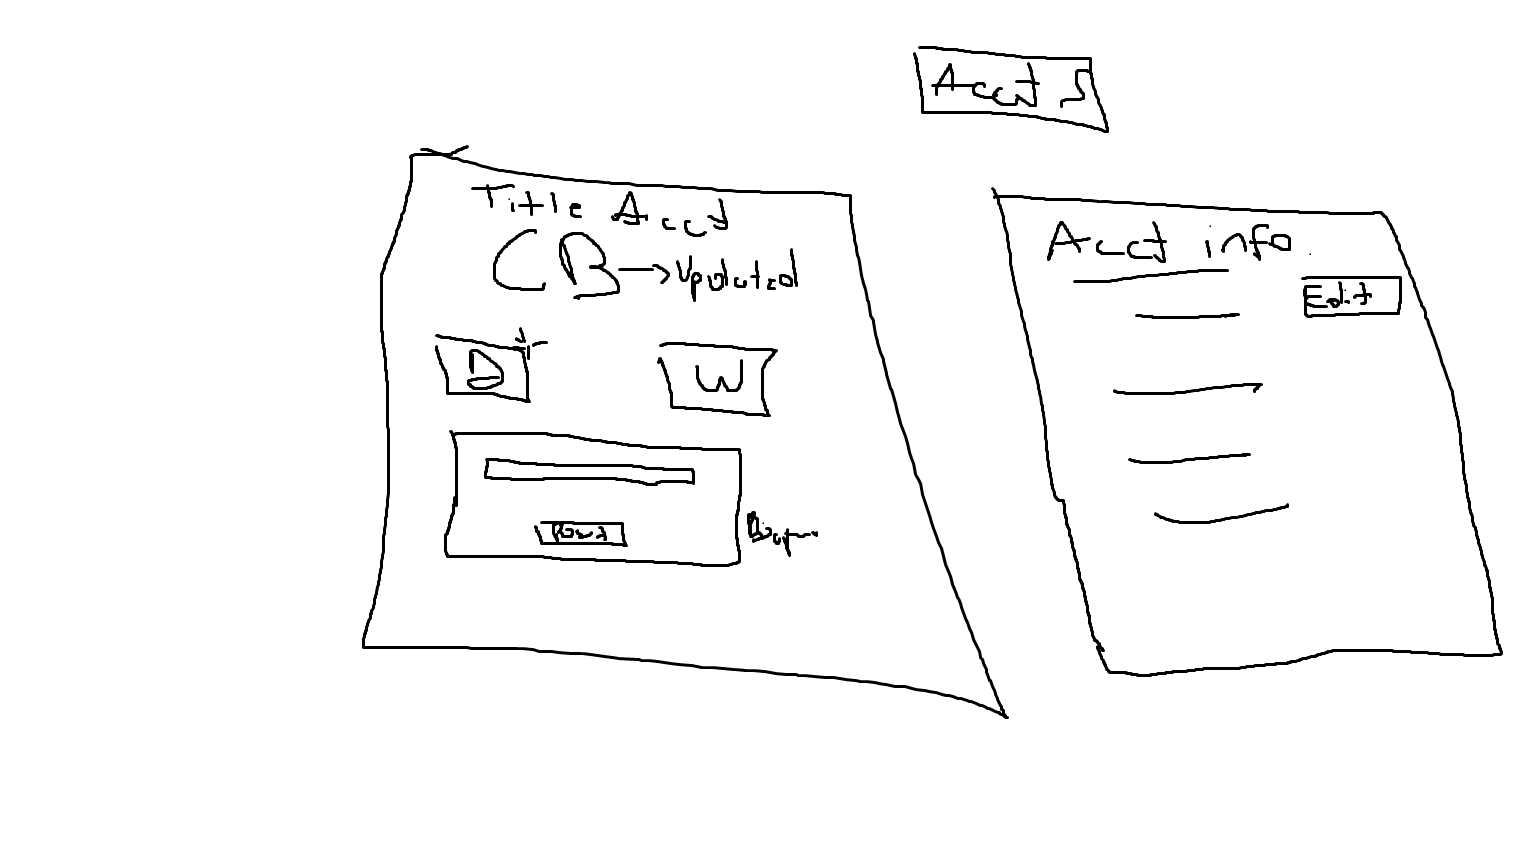 Acct S
Title Acct
CB → Updated
D
W
Acct info
Edit